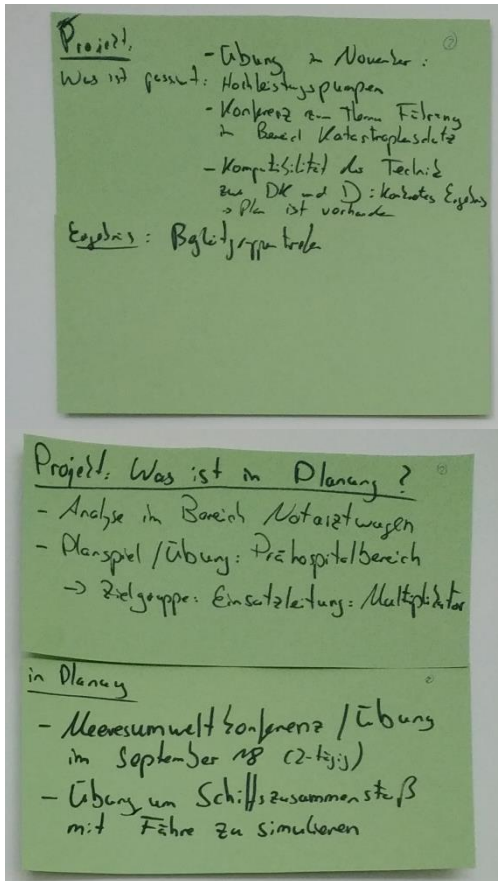 Projekt: - Übung im November: ②
Was ist passiert: Hochleistungspumpen
- Konferenz zum Thema Führung
im Bereich Katastrophenschutz
- Kompatibilität der Technik
zw. DK und D: Konkretes Ergebnis
→ Plan ist vorhanden
Ergebnis: Begleitgruppentreffen
Projekt: Was ist in Planung? ②
- Analyse im Bereich Notarztwagen
- Planspiel/Übung: Prähospitalbereich
→ Zielgruppe: Einsatzleitung: Multiplikator
in Planung
- Meeresumweltkonferenz/Übung
im September 18 (2-tägig)
- Übung um Schiffszusammenstoß
mit Fähre zu simulieren